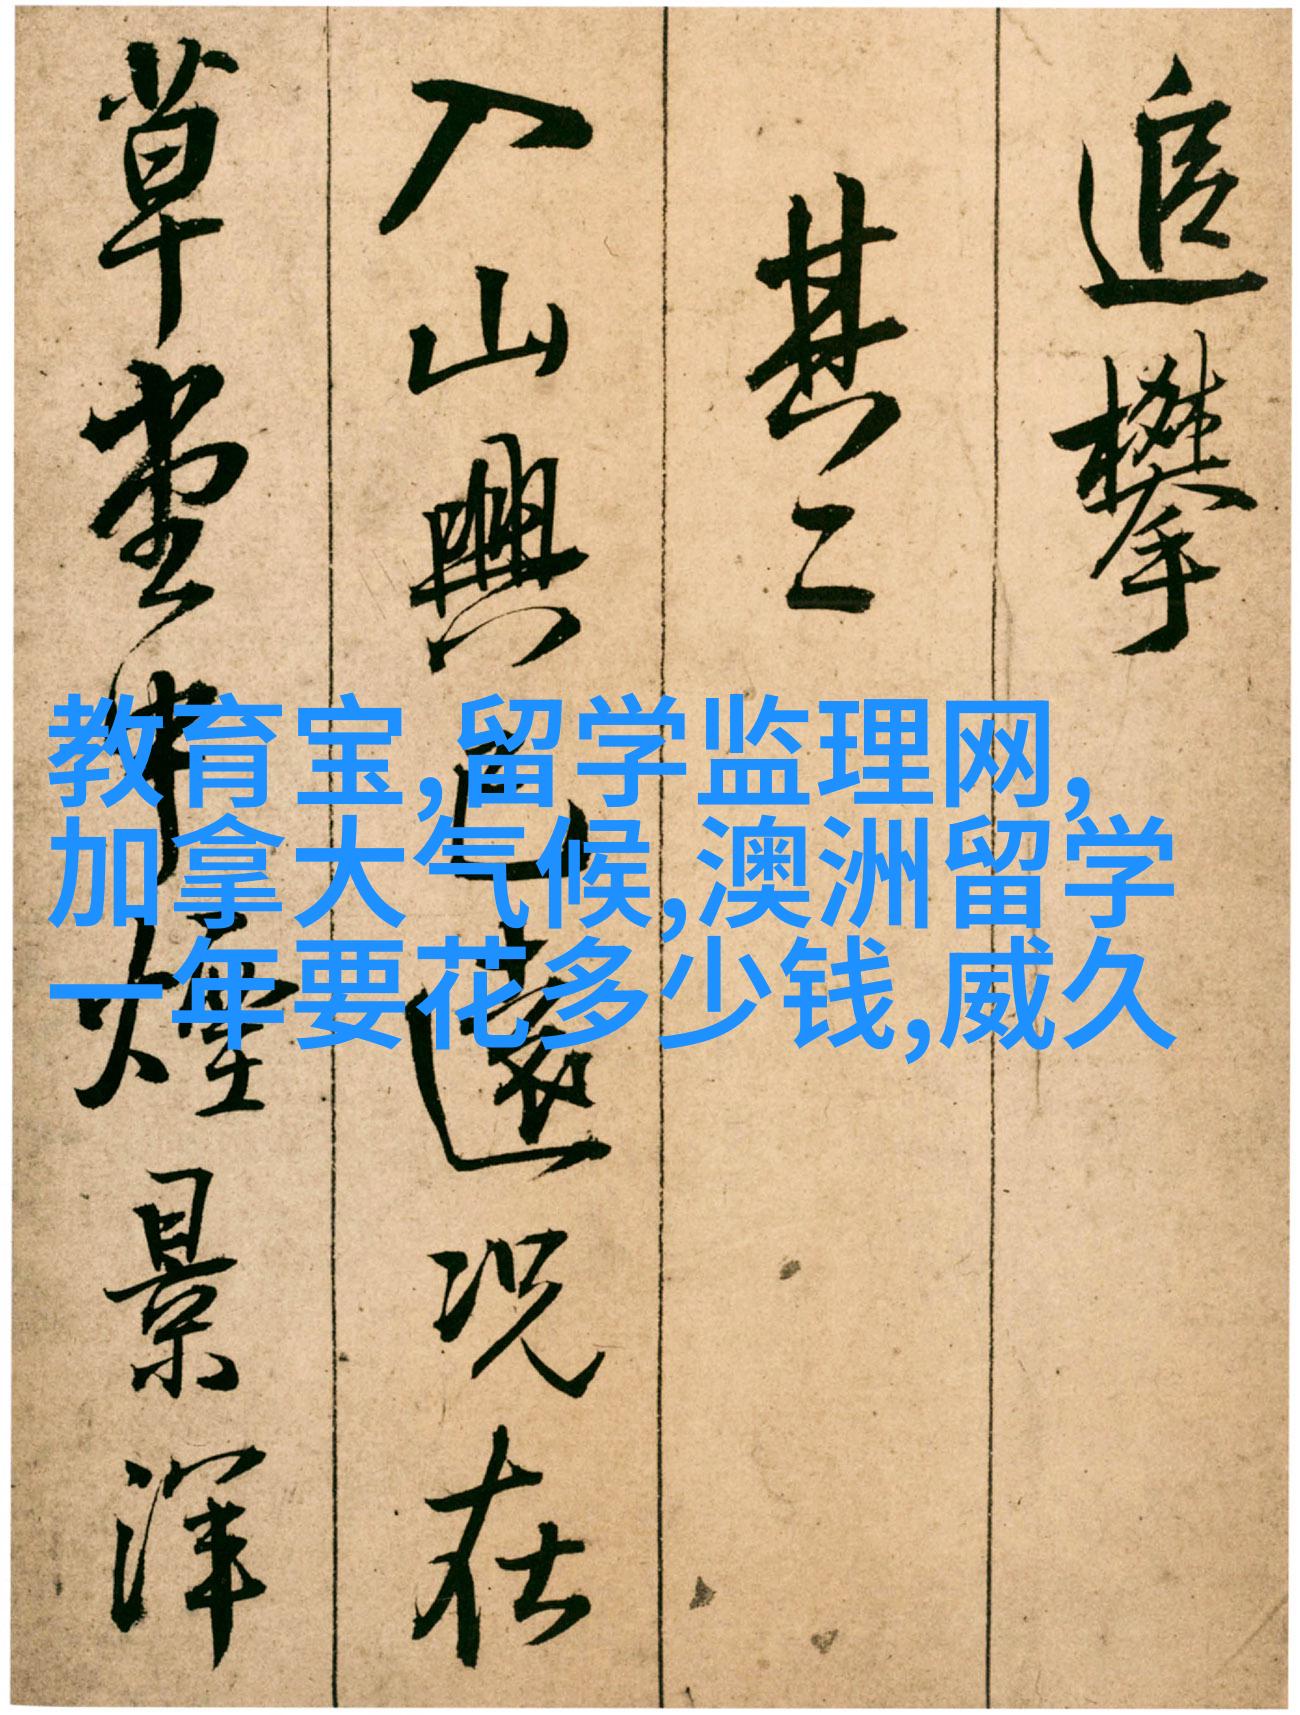 追攀
其二
入山興已遠况在
草堂中煙景渾
教育宝,留学监理网,
加拿大气候,澳洲留学
一年要花多少钱,威久